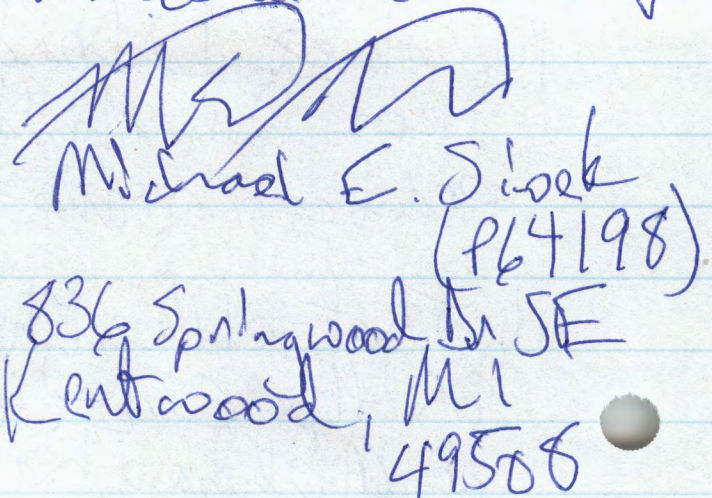 Michael E. Sisak
(P64198)
836 Springwood Dr SE
Kentwood, MI
49508